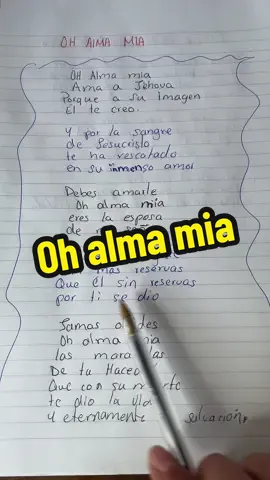 OH AlMA MIA
OH Alma mia
Ama a Jehova
Porque a su imagen
El te creo.
Y por la sangre
de Jesucristo
te ha rescatado
en su inmenso amor
Debes amarle
Oh alma mia
eres la esposa
de
Oh alma mia
mas reservas
Que El sin reservas
por ti se dio
Jamas
Oh alma mia
las
De tu Hacedor
Que con su
te dio la vida
Y eternamente salvacion